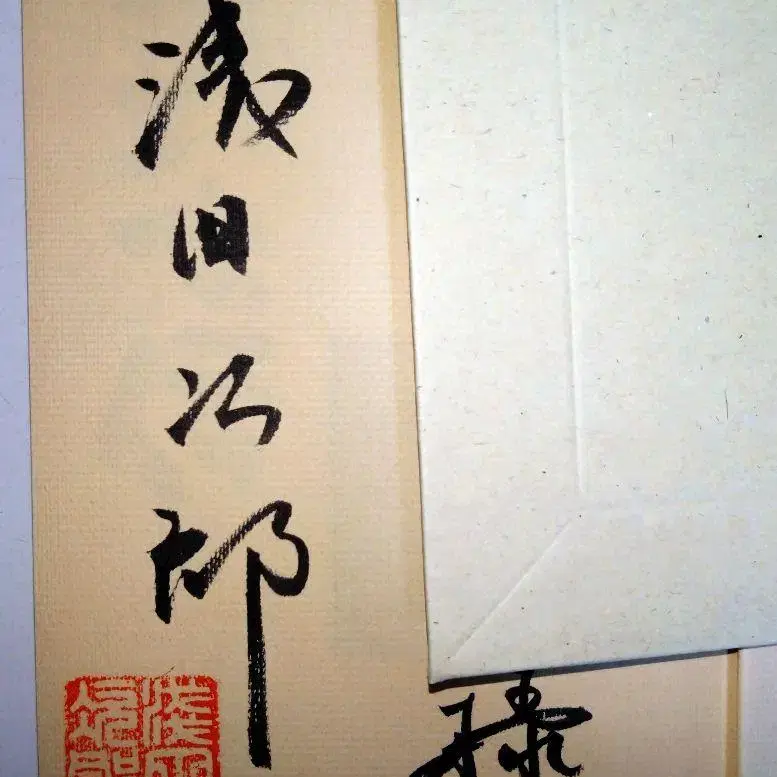 浅田次郎
様